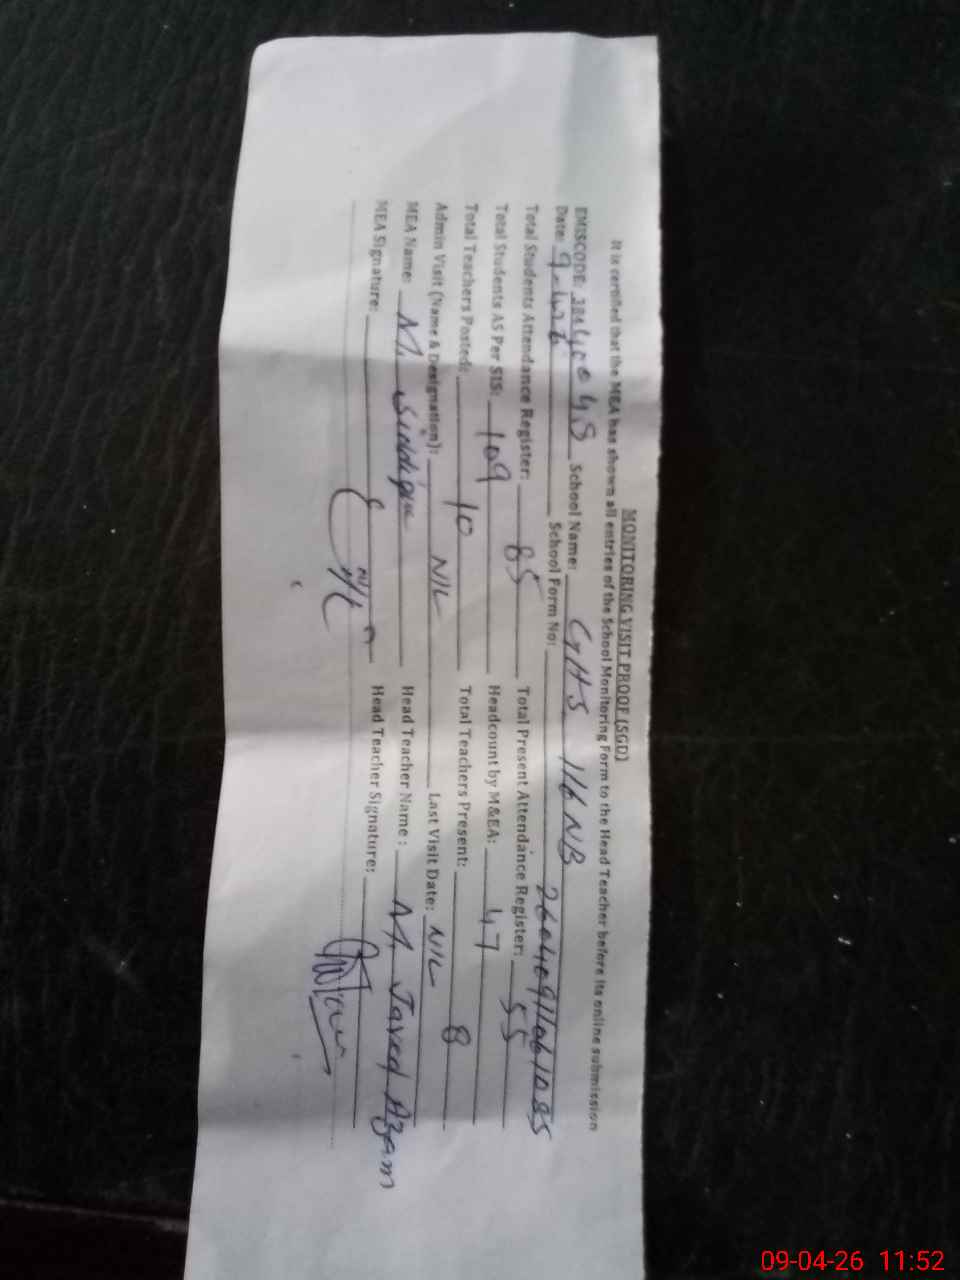 MONITORING VISIT PROOF (SGD)
It is certified that the MEA has shown all entries of the School Monitoring Form to the Head Teacher before its online submission
EMISCODE: School Name: GHS 116 NB
Date: 9-4-26 School Form No: 26040911061085
Total Students Attendance Register: 85 Total Present Attendance Register: 55
Total Students AS Per SIS: 109 Headcount by M&EA: 47
Total Teachers Posted: 10 Total Teachers Present: 8
Admin Visit (Name & Designation): NIL Last Visit Date: NIL
MEA Name: M. Siddique Head Teacher Name: M Javed Azam
MEA Signature: Head Teacher Signature:
09-04-26 11:52